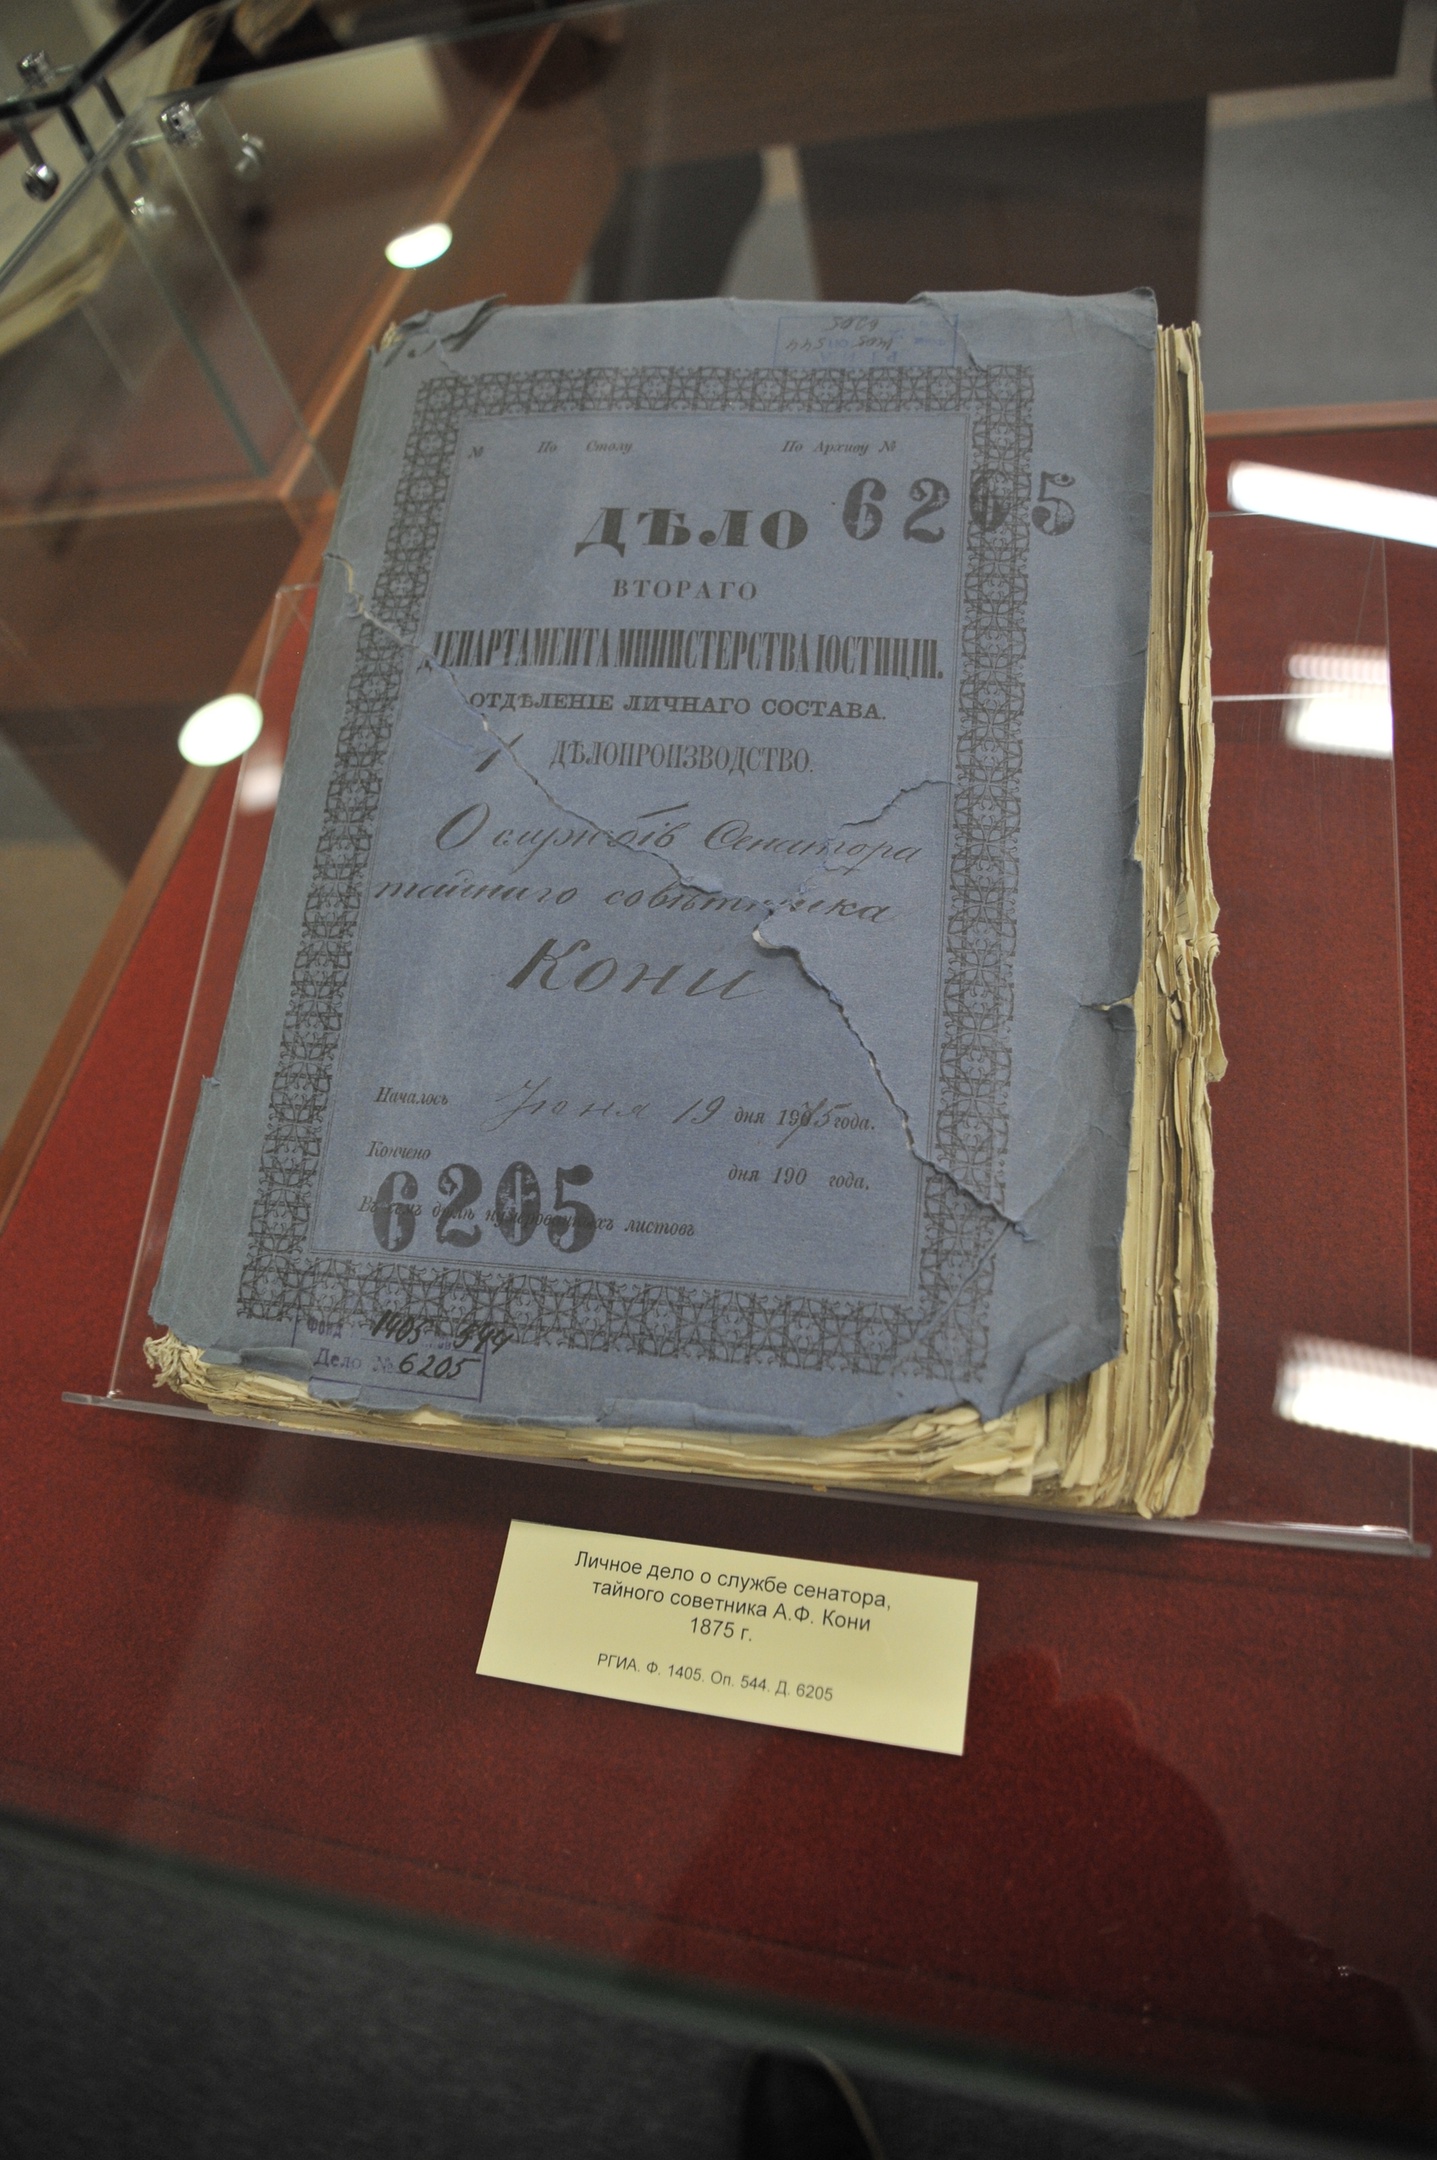 № По Столу По Архиву №
ДѢЛО 6205
ВТОРАГО
ДЕПАРТАМЕНТА МИНИСТЕРСТВА ЮСТИЦІИ.
ОТДѢЛЕНІЕ ЛИЧНАГО СОСТАВА.
1 ДѢЛОПРОИЗВОДСТВО.
О службѣ Сенатора
тайнаго совѣтника
Кони
Началось Іюня 19 дня 1875 года.
Кончено дня 190 года.
6205
Въ семъ дѣлѣ нумерованныхъ листовъ
Фонд 1405 544
Дело № 6205
Личное дело о службе сенатора,
тайного советника А.Ф. Кони
1875 г.
РГИА. Ф. 1405. Оп. 544. Д. 6205